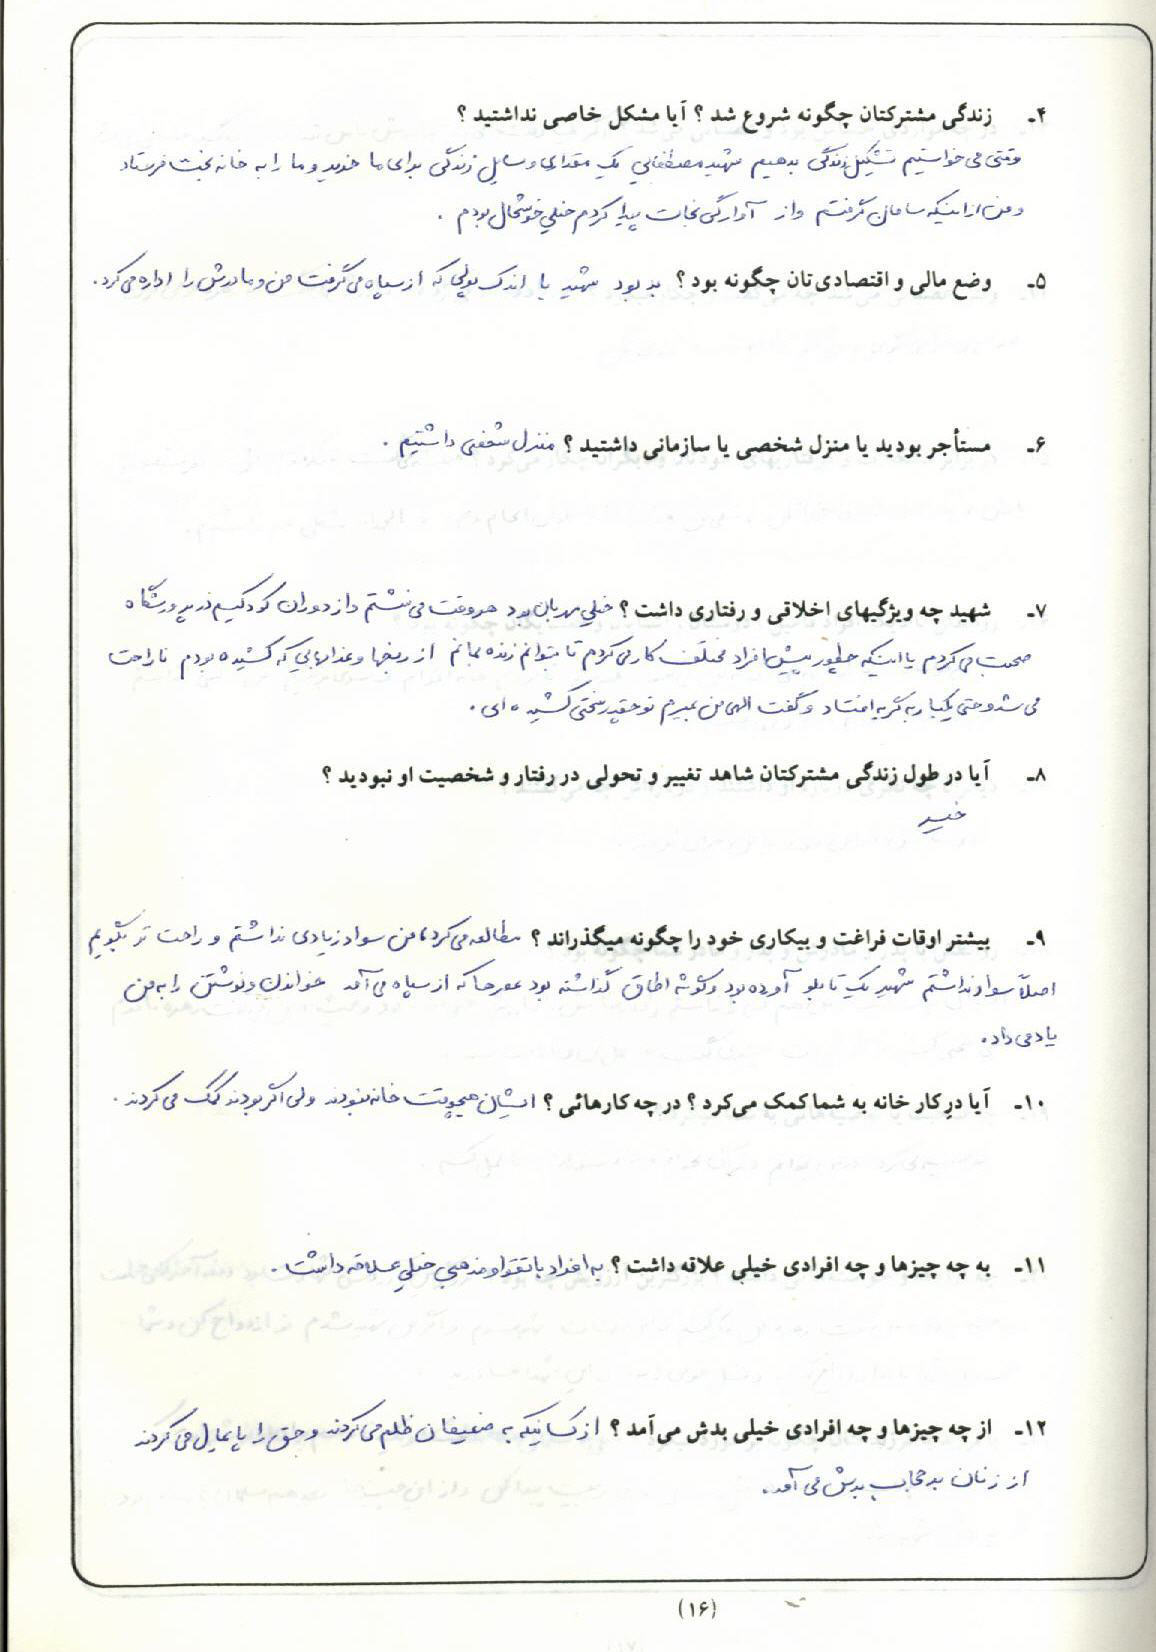 ۴ـ زندگی مشترکتان چگونه شروع شد ؟ آیا مشکل خاصی نداشتید ؟
وقتی می خواستیم تشکیل زندگی بدهیم شهید مصطفایی یک مقداری وسایل زندگی برای ما خرید و ما را به خانه بخت فرستاد
و من از اینکه سامان گرفتم و از آوارگی نجات پیدا کردم خیلی خوشحال بودم .
۵ـ وضع مالی و اقتصادی‌تان چگونه بود ؟ بد نبود شهید با اندک پولی که از سپاه می گرفت من و مادرش را اداره می کرد .
۶ـ مستأجر بودید یا منزل شخصی یا سازمانی داشتید ؟ منزل شخصی داشتیم .
۷ـ شهید چه ویژگیهای اخلاقی و رفتاری داشت ؟ خیلی مهربان بود هر وقت می نشستم و از دوران کودکیم در پرورشگاه
صحبت می کردم یا اینکه چطور پیش افراد مختلف کار می کردم تا بتوانم زنده بمانم از رنجها و عذابهایی که کشیده بودم ناراحت
می شد و حتی یکبار به گریه افتاد و گفت الهی من بمیرم تو چقدر سختی کشیده ای .
۸ـ آیا در طول زندگی مشترکتان شاهد تغییر و تحولی در رفتار و شخصیت او نبودید ؟
خیر
۹ـ بیشتر اوقات فراغت و بیکاری خود را چگونه میگذراند ؟ مطالعه می کرد، من سواد زیادی نداشتم و راحت تر بگویم
اصلاً سواد نداشتم شهید یک تابلو آورده بود و گوشه اطاق گذاشته بود عصرها که از سپاه می آمد خواندن و نوشتن را به من
یاد می داد .
۱۰ـ آیا در کار خانه به شما کمک می‌کرد ؟ در چه کارهائی ؟ ایشان هیچوقت خانه نبودند ولی اگر بودند کمک می کردند .
۱۱ـ به چه چیزها و چه افرادی خیلی علاقه داشت ؟ به افراد با تقوا و مذهبی خیلی علاقه داشت .
۱۲ـ از چه چیزها و چه افرادی خیلی بدش می‌آمد ؟ از کسانیکه به ضعیفان ظلم می کردند و حق را پایمال می کردند
از زنان بد حجاب بدش می آمد .
(۱۶)